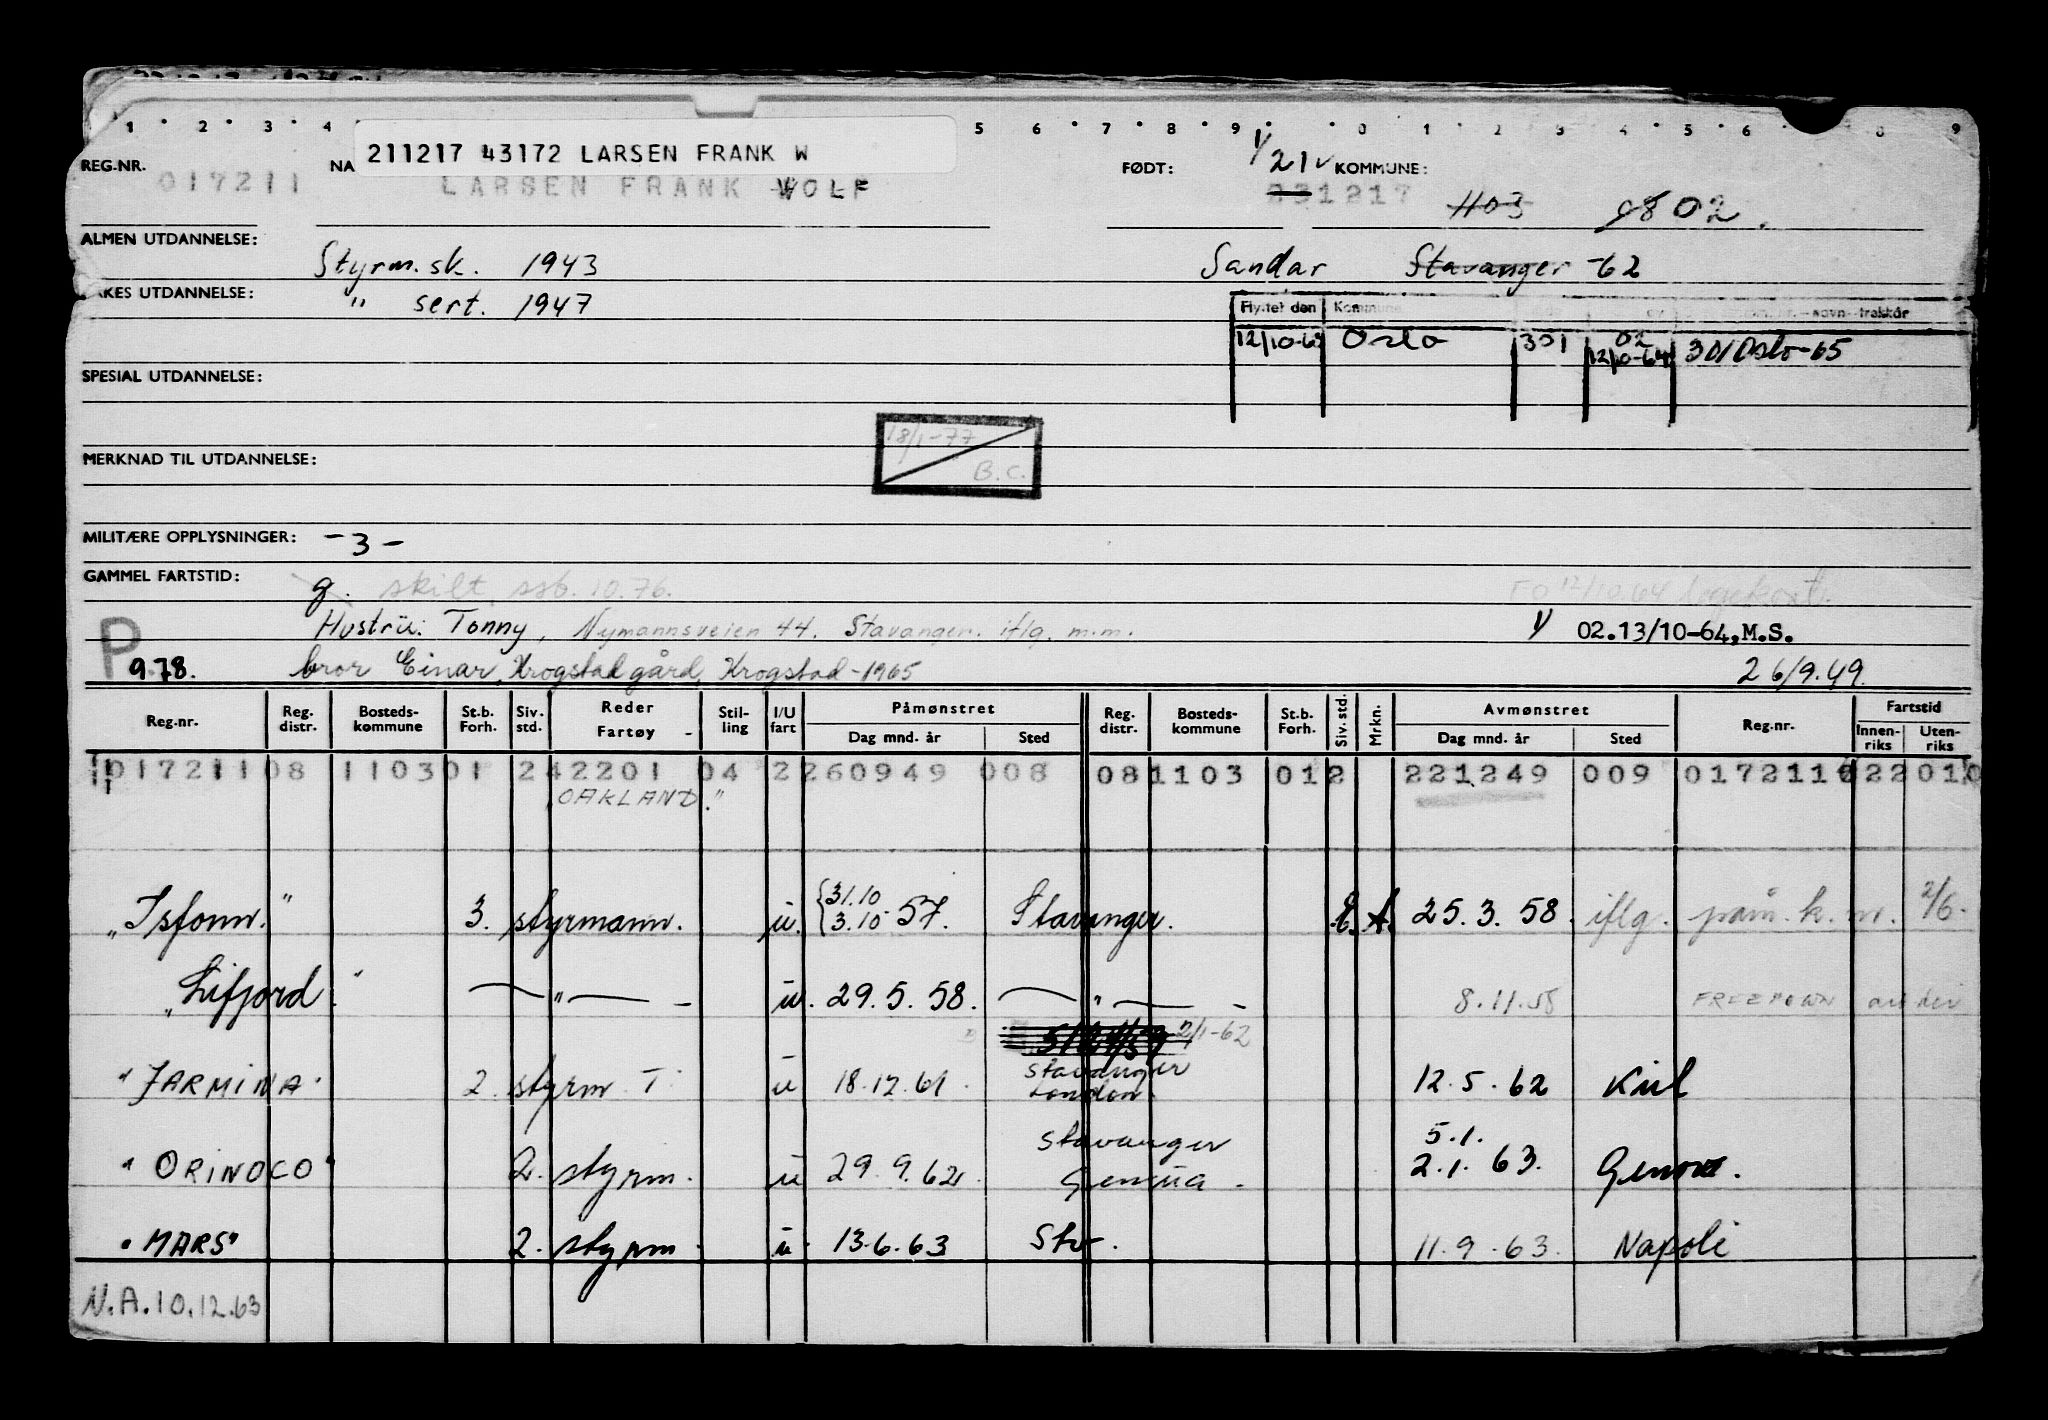 1 2 3 4 5 6 7 8 9 0 1 2 3 4 5 6 8 9
211217 43172 LARSEN FRANK W
REG.NR. NA FØDT: 21 KOMMUNE:
017211 LARSEN FRANK WOLF 031217 1103 0802.
ALMEN UTDANNELSE: Styrm.sk. 1943 Sandar Stavanger -62
AKES UTDANNELSE: " sert. 1947
Flyttet den Kommune navn-trekkår
12/10-63 Oslo 301 02 12/10-64 301 Oslo-65
SPESIAL UTDANNELSE:
18/1-77 B.C.
MERKNAD TIL UTDANNELSE:
MILITÆRE OPPLYSNINGER: -3-
GAMMEL FARTSTID: g. skilt, ssb. 10.76. FO 12/10.64
Hustru: Tonny, Nymannsveien 44. Stavanger. iflg. m.m. 02.13/10-64,M.S.
P 9.78. bror Einar, Krogstad gård, Krogstad-1965 26/9.49.
Reg.nr. Reg. distr. Bosteds-kommune St.b. Forh. Siv. std. Reder Fartøy Stil-ling I/U fart Påmønstret Reg. distr. Bosteds-kommune St.b. Forh. Siv. std. Mrkn. Avmønstret Reg.nr. Fartstid
Dag mnd. år Sted Dag mnd. år Sted Innen-riks Uten-riks
017211 08 1103 01 2 42201 04 2 260949 008 08 1103 01 2 221249 009 017211 022 010
"OAKLAND"
"Isfonn." 3. styrmann. u. 31.10 3.10 57. Stavanger. E. A. 25.3.58. iflg. påm.k. nr. 2/6.
"Lifjord" — " — u. 29.5.58. — " — 8.11.58 FREETOWN
2/1-62
"JARMINA" 2. styrm. T. u 18.12.61. Stavanger London. 12.5.62 Kiel
"ORINOCO" 2. styrm. u 29.9.62. Stavanger Genua. 5.1. 2.1.63. Genova.
"MARS" 2. styrm. u. 13.6.63 Stv. 11.9.63. Napoli
N.A.10.12.63